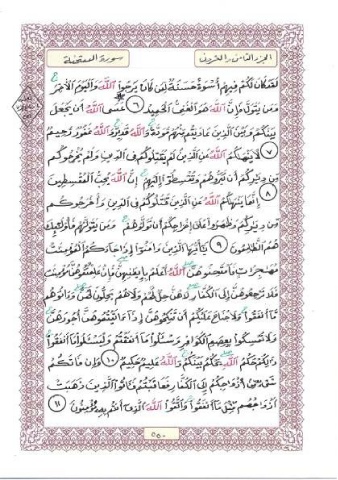 الجزء الثامن والعشرون
سورة الممتحنة
لَقَدْ كَانَ لَكُمْ فِيهِمْ أُسْوَةٌ حَسَنَةٌ لِمَن كَانَ يَرْجُوا اللَّهَ وَالْيَوْمَ الْآخِرَ
وَمَن يَتَوَلَّ فَإِنَّ اللَّهَ هُوَ الْغَنِيُّ الْحَمِيدُ ٦ عَسَى اللَّهُ أَن يَجْعَلَ
بَيْنَكُمْ وَبَيْنَ الَّذِينَ عَادَيْتُم مِّنْهُم مَّوَدَّةً وَاللَّهُ قَدِيرٌ وَاللَّهُ غَفُورٌ رَّحِيمٌ
٧ لَا يَنْهَاكُمُ اللَّهُ عَنِ الَّذِينَ لَمْ يُقَاتِلُوكُمْ فِي الدِّينِ وَلَمْ يُخْرِجُوكُم
مِّن دِيَارِكُمْ أَن تَبَرُّوهُمْ وَتُقْسِطُوا إِلَيْهِمْ إِنَّ اللَّهَ يُحِبُّ الْمُقْسِطِينَ
٨ إِنَّمَا يَنْهَاكُمُ اللَّهُ عَنِ الَّذِينَ قَاتَلُوكُمْ فِي الدِّينِ وَأَخْرَجُوكُم
مِّن دِيَارِكُمْ وَظَاهَرُوا عَلَى إِخْرَاجِكُمْ أَن تَوَلَّوْهُمْ وَمَن يَتَوَلَّهُمْ فَأُولَئِكَ
هُمُ الظَّالِمُونَ ٩ يَا أَيُّهَا الَّذِينَ آمَنُوا إِذَا جَاءَكُمُ الْمُؤْمِنَاتُ
مُهَاجِرَاتٍ فَامْتَحِنُوهُنَّ اللَّهُ أَعْلَمُ بِإِيمَانِهِنَّ فَإِنْ عَلِمْتُمُوهُنَّ مُؤْمِنَاتٍ
فَلَا تَرْجِعُوهُنَّ إِلَى الْكُفَّارِ لَا هُنَّ حِلٌّ لَّهُمْ وَلَا هُمْ يَحِلُّونَ لَهُنَّ وَآتُوهُم
مَّا أَنفَقُوا وَلَا جُنَاحَ عَلَيْكُمْ أَن تَنكِحُوهُنَّ إِذَا آتَيْتُمُوهُنَّ أُجُورَهُنَّ
وَلَا تُمْسِكُوا بِعِصَمِ الْكَوَافِرِ وَاسْأَلُوا مَا أَنفَقْتُمْ وَلْيَسْأَلُوا مَا أَنفَقُوا
ذَلِكُمْ حُكْمُ اللَّهِ يَحْكُمُ بَيْنَكُمْ وَاللَّهُ عَلِيمٌ حَكِيمٌ ١٠ وَإِن فَاتَكُمْ
شَيْءٌ مِّنْ أَزْوَاجِكُمْ إِلَى الْكُفَّارِ فَعَاقَبْتُمْ فَآتُوا الَّذِينَ ذَهَبَتْ
أَزْوَاجُهُم مِّثْلَ مَا أَنفَقُوا وَاتَّقُوا اللَّهَ الَّذِي أَنتُم بِهِ مُؤْمِنُونَ ١١
٥٥٠